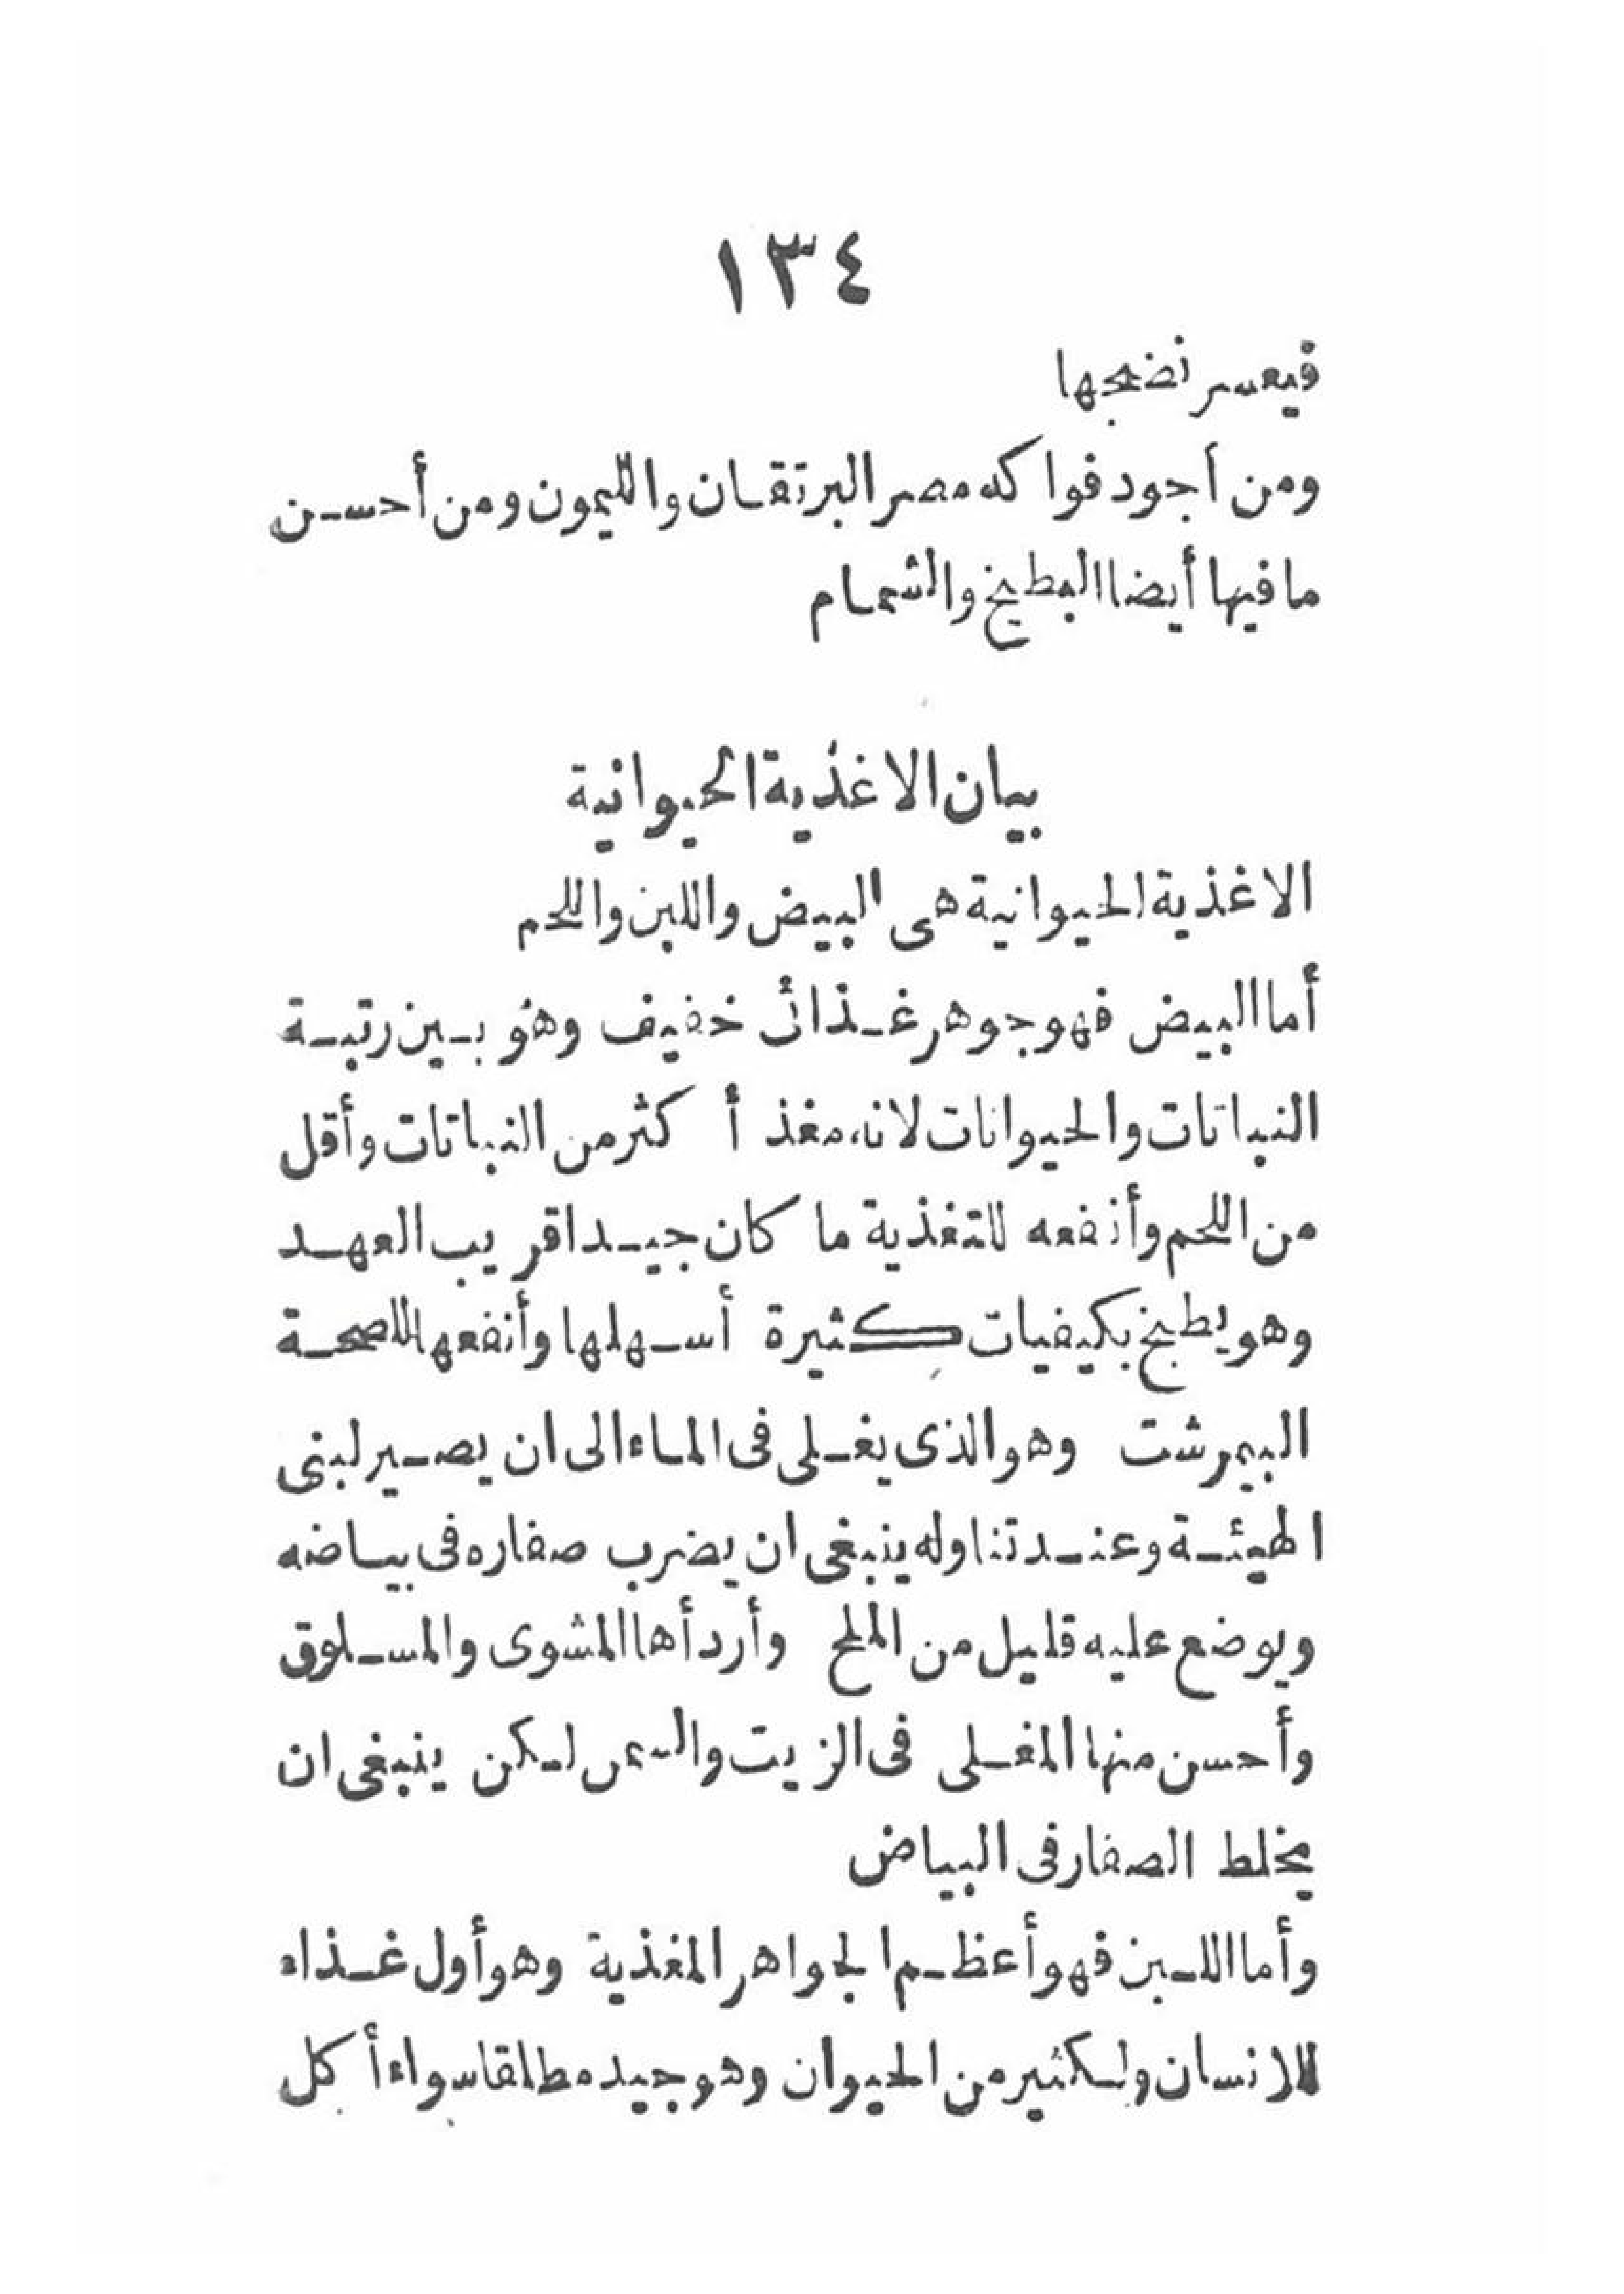 ١٣٤
فيعسر نضجها
ومن أجود فواكه مصر البرتقان والليمون ومن أحسن
ما فيها أيضا البطيخ والشمام
بيان الاغذية الحيوانية
الاغذية الحيوانية هى البيض واللبن واللحم
أما البيض فهو جوهر غذائى خفيف وهو بين رتبة
النباتات والحيوانات لانه مغذ أكثر من النباتات وأقل
من اللحم وأنفعه للتغذية ما كان جيدا قريب العهد
وهو يطبخ بكيفيات كثيرة أسهلها وأنفعها للصحة
البيمرشت وهو الذى يغلى فى الماء الى ان يصير لبنى
الهيئة وعند تناوله ينبغى ان يضرب صفاره فى بياضه
ويوضع عليه قليل من الملح وأردأها المشوى والمسلوق
وأحسن منها المغلى فى الزيت والسمن لكن ينبغى ان
يخلط الصفار فى البياض
وأما اللبن فهو أعظم الجواهر المغذية وهو أول غذاء
للانسان ولكثير من الحيوان وهو جيد مطلقا سواء أكل